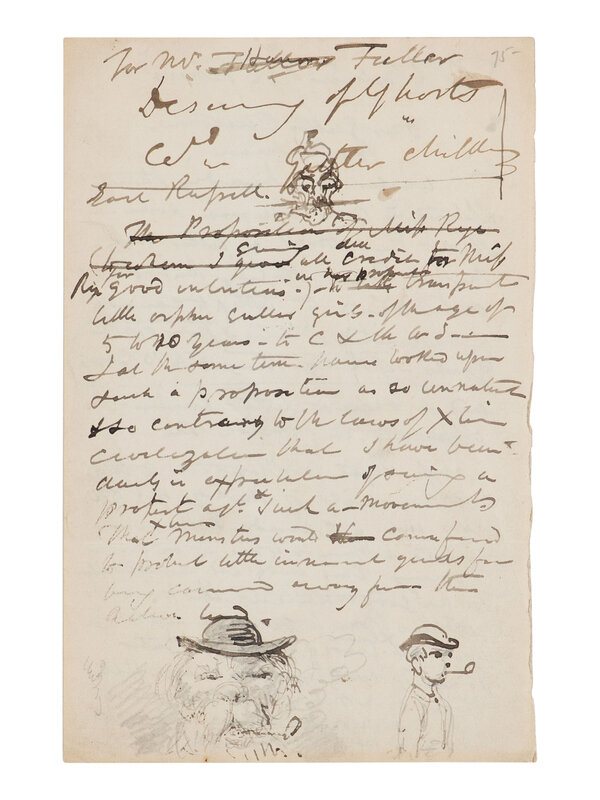 For Mr. Fuller
75-
of Ghosts
Gutter Children
Earl Russell.
The Proposition of Miss Rye
giving due
to whom I give all credit for Miss
Rye good intentions -) to take transport
little orphan gutter girls - of the age of
5 to 10 years - to C &
I at the same time have looked upon
such a proposition as so unnatural
& so contrary to the laws of Xtian
Civilization that I have been
daily in expectation of seeing a
protest agst such a movement
that Xtian Ministers would come forward
to protect little innocent girls from
being carried away from